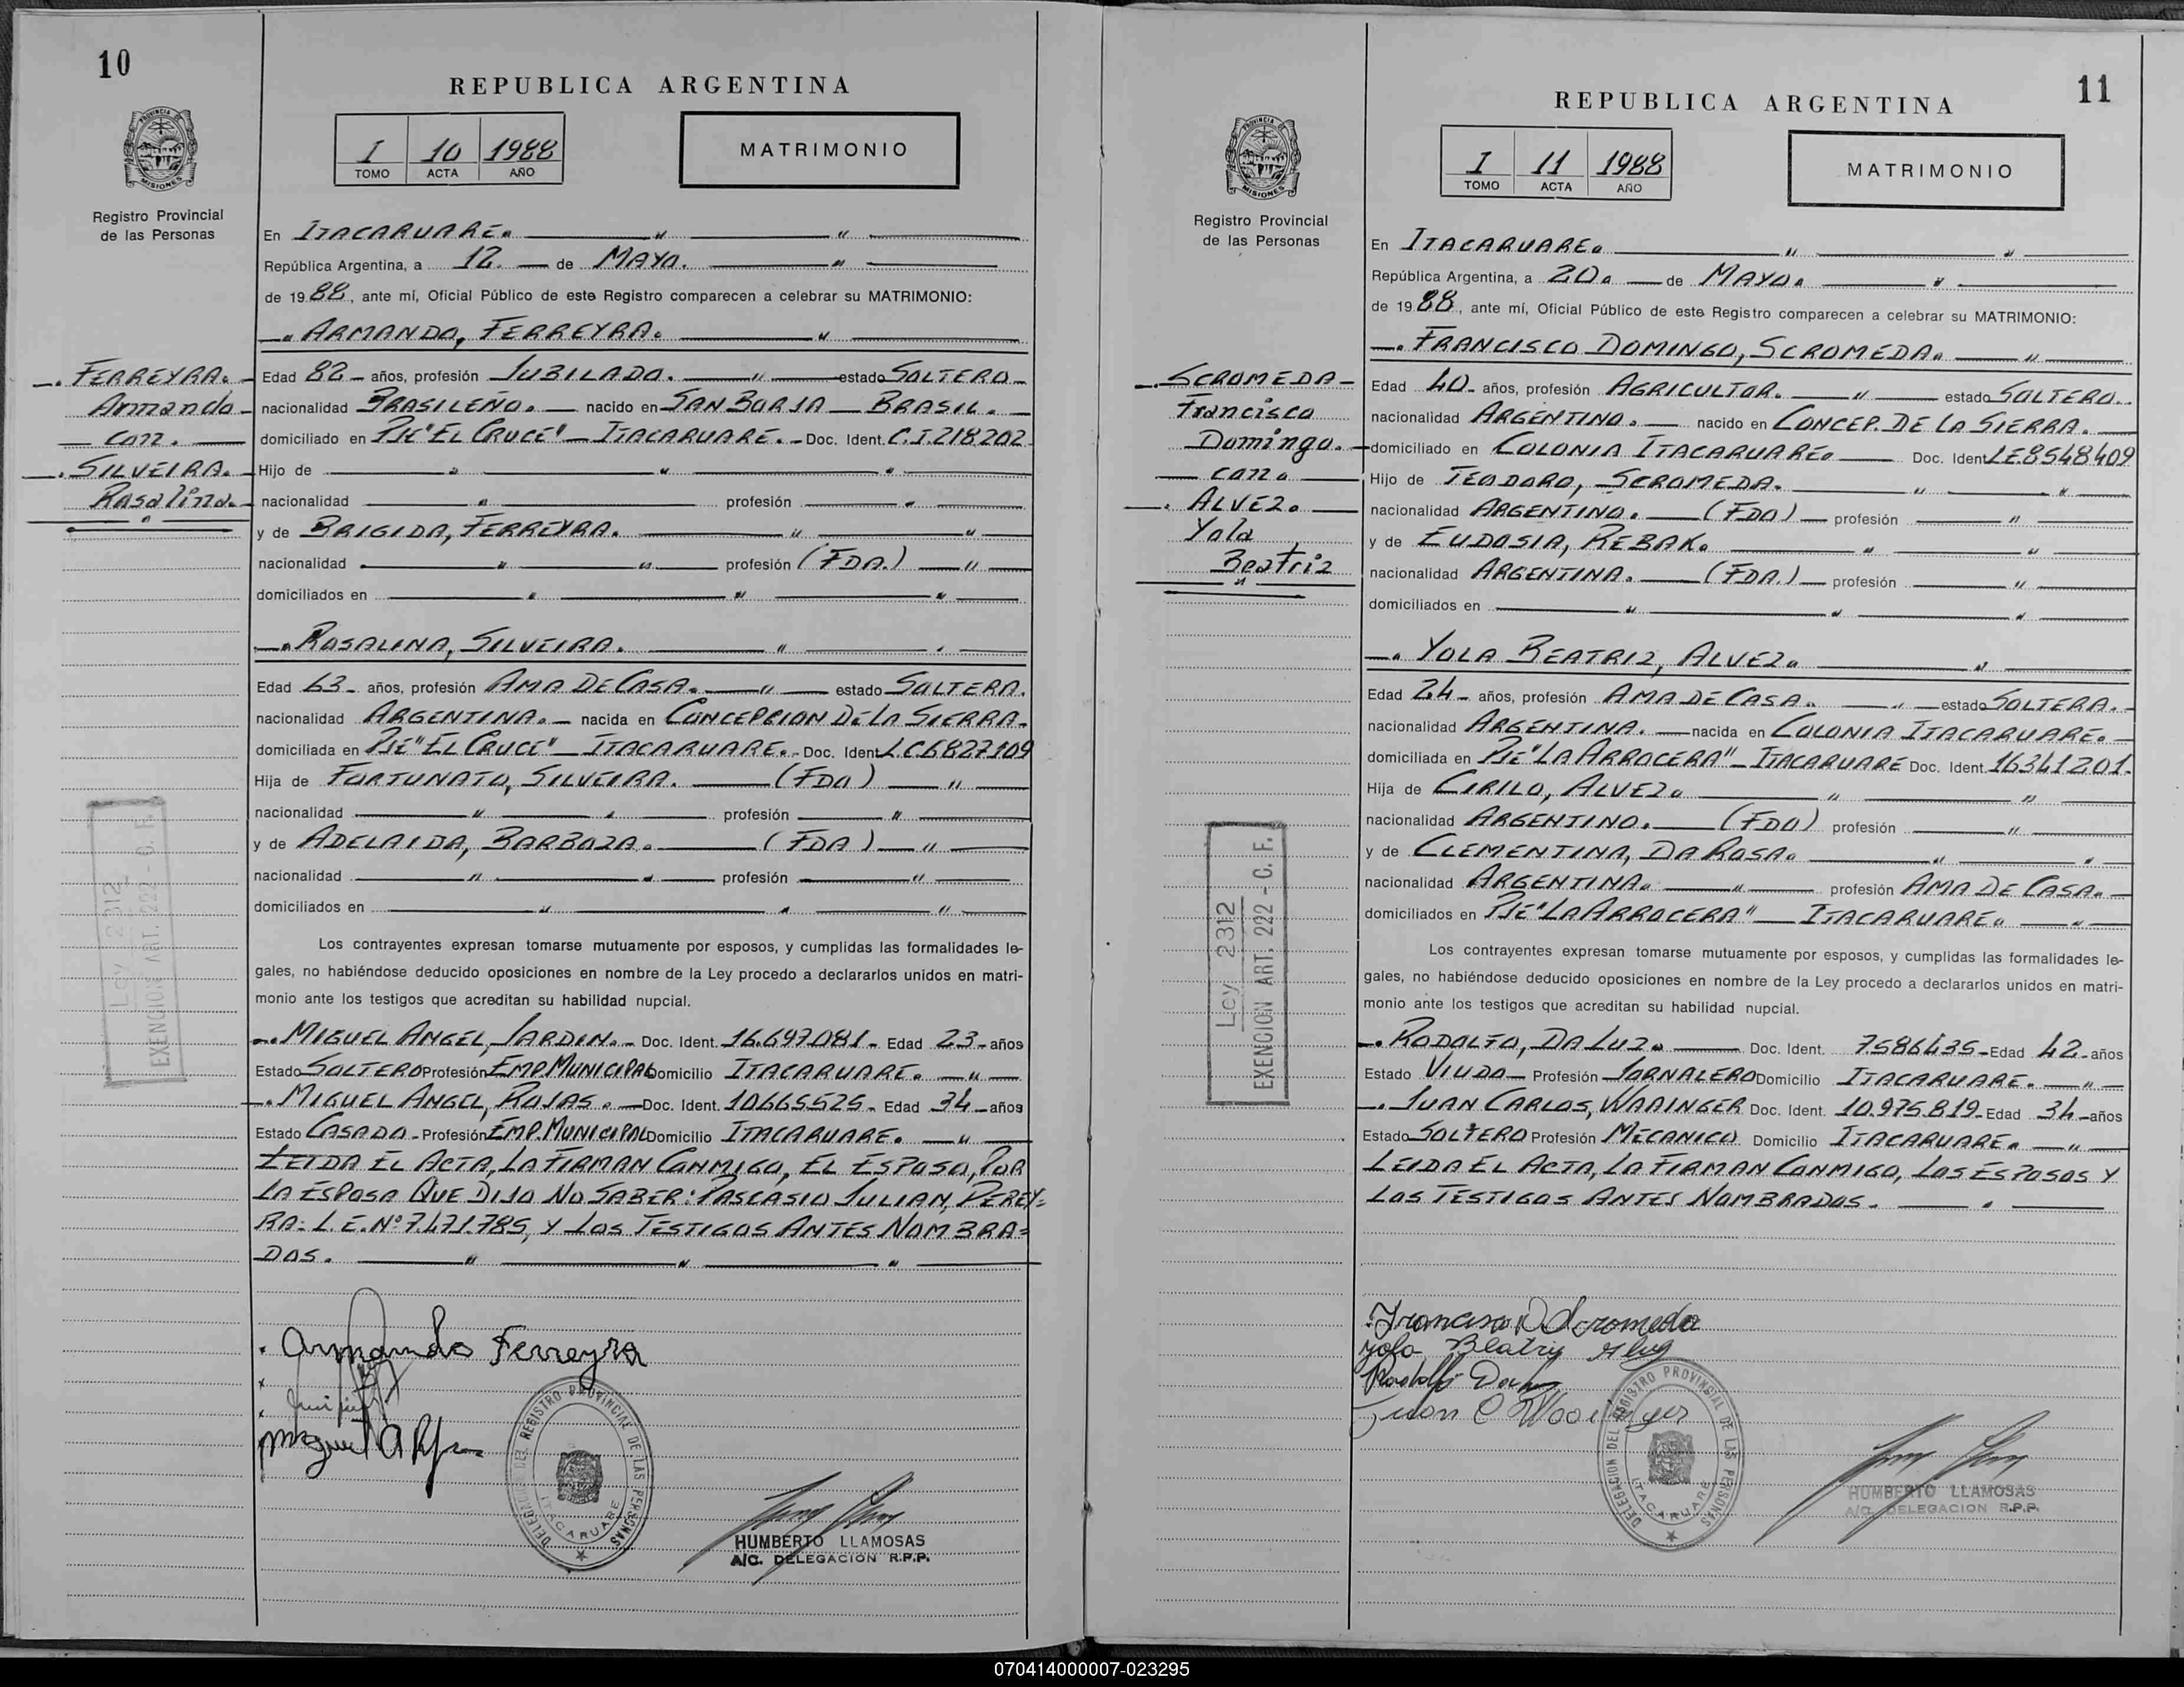 10
REPUBLICA ARGENTINA
PROVINCIA DE MISIONES
I 10 1988
TOMO ACTA AÑO
MATRIMONIO
Registro Provincial
de las Personas
En ITACARUARE.
República Argentina, a 12. de MAYO.
de 1988, ante mí, Oficial Público de este Registro comparecen a celebrar su MATRIMONIO:
ARMANDO, FERREYRA.
FERREYRA.
Armando
con.
SILVEIRA.
Rosalina.
Edad 82 años, profesión JUBILADO. estado SOLTERO
nacionalidad BRASILEÑO. nacido en SAN BORJA BRASIL.
domiciliado en PJE "EL CRUCE" ITACARUARE. Doc. Ident. C.I. 218.202
Hijo de
nacionalidad profesión
y de BRIGIDA, FERREYRA.
nacionalidad profesión (FDA.)
domiciliados en
ROSALINA, SILVEIRA.
Edad 63 años, profesión AMA DE CASA. estado SOLTERA.
nacionalidad ARGENTINA. nacida en CONCEPCION DE LA SIERRA.
domiciliada en PJE "EL CRUCE" ITACARUARE. Doc. Ident. L.C 6827109
Hija de FORTUNATO, SILVEIRA. (FDO)
nacionalidad profesión
y de ADELAIDA, BARBOZA. (FDA)
nacionalidad profesión
domiciliados en
Ley 2312
EXENCION ART. 222 - C. F.
Los contrayentes expresan tomarse mutuamente por esposos, y cumplidas las formalidades le-
gales, no habiéndose deducido oposiciones en nombre de la Ley procedo a declararlos unidos en matri-
monio ante los testigos que acreditan su habilidad nupcial.
MIGUEL ANGEL, JARDIN. Doc. Ident. 16.697.081 Edad 23 años
Estado SOLTERO Profesión EMP. MUNICIPAL Domicilio ITACARUARE.
MIGUEL ANGEL, ROJAS. Doc. Ident. 10665525 Edad 34 años
Estado CASADO Profesión EMP. MUNICIPAL Domicilio ITACARUARE.
LEIDA EL ACTA, LA FIRMAN CONMIGO, EL ESPOSO, POR
LA ESPOSA QUE DIJO NO SABER: PASCASIO JULIAN, PEREY-
RA: L.E. Nº 7.471.785, Y LOS TESTIGOS ANTES NOMBRA=
DOS.
Armando Ferreyra
DELEGACION DEL REGISTRO PROVINCIAL DE LAS PERSONAS
ITACARUARE
HUMBERTO LLAMOSAS
A/C. DELEGACION R.P.P.
11
REPUBLICA ARGENTINA
PROVINCIA DE MISIONES
I 11 1988
TOMO ACTA AÑO
MATRIMONIO
Registro Provincial
de las Personas
En ITACARUARE.
República Argentina, a 20. de MAYO.
de 1988, ante mí, Oficial Público de este Registro comparecen a celebrar su MATRIMONIO:
FRANCISCO DOMINGO, SCROMEDA.
SCROMEDA
Francisco
Domingo.
con.
ALVEZ.
Yola
Beatriz
Edad 40 años, profesión AGRICULTOR. estado SOLTERO.
nacionalidad ARGENTINO. nacido en CONCEP. DE LA SIERRA.
domiciliado en COLONIA ITACARUARE. Doc. Ident. LE8548409
Hijo de TEODORO, SCROMEDA.
nacionalidad ARGENTINO. (FDO) profesión
y de EUDOSIA, REBAK.
nacionalidad ARGENTINA. (FDA.) profesión
domiciliados en
YOLA BEATRIZ, ALVEZ.
Edad 24 años, profesión AMA DE CASA. estado SOLTERA.
nacionalidad ARGENTINA. nacida en COLONIA ITACARUARE.
domiciliada en PJE "LA ARROCERA" ITACARUARE Doc. Ident. 16341201.
Hija de CIRILO, ALVEZ.
nacionalidad ARGENTINO. (FDO) profesión
y de CLEMENTINA, DA ROSA.
nacionalidad ARGENTINA. profesión AMA DE CASA.
domiciliados en PJE "LA ARROCERA" ITACARUARE.
Ley 2312
EXENCION ART. 222 - C. F.
Los contrayentes expresan tomarse mutuamente por esposos, y cumplidas las formalidades le-
gales, no habiéndose deducido oposiciones en nombre de la Ley procedo a declararlos unidos en matri-
monio ante los testigos que acreditan su habilidad nupcial.
RODOLFO, DA LUZ. Doc. Ident. 7586435 Edad 42 años
Estado VIUDO Profesión JORNALERO Domicilio ITACARUARE.
JUAN CARLOS, WARINGER Doc. Ident. 10.975.819 Edad 34 años
Estado SOLTERO Profesión MECANICO Domicilio ITACARUARE.
LEIDA EL ACTA, LA FIRMAN CONMIGO, LOS ESPOSOS Y
LOS TESTIGOS ANTES NOMBRADOS.
Francisco D Scromeda
Yola Beatriz Alvez
DELEGACION DEL REGISTRO PROVINCIAL DE LAS PERSONAS
ITACARUARE
HUMBERTO LLAMOSAS
A/C. DELEGACION R.P.P.
070414000007-023295